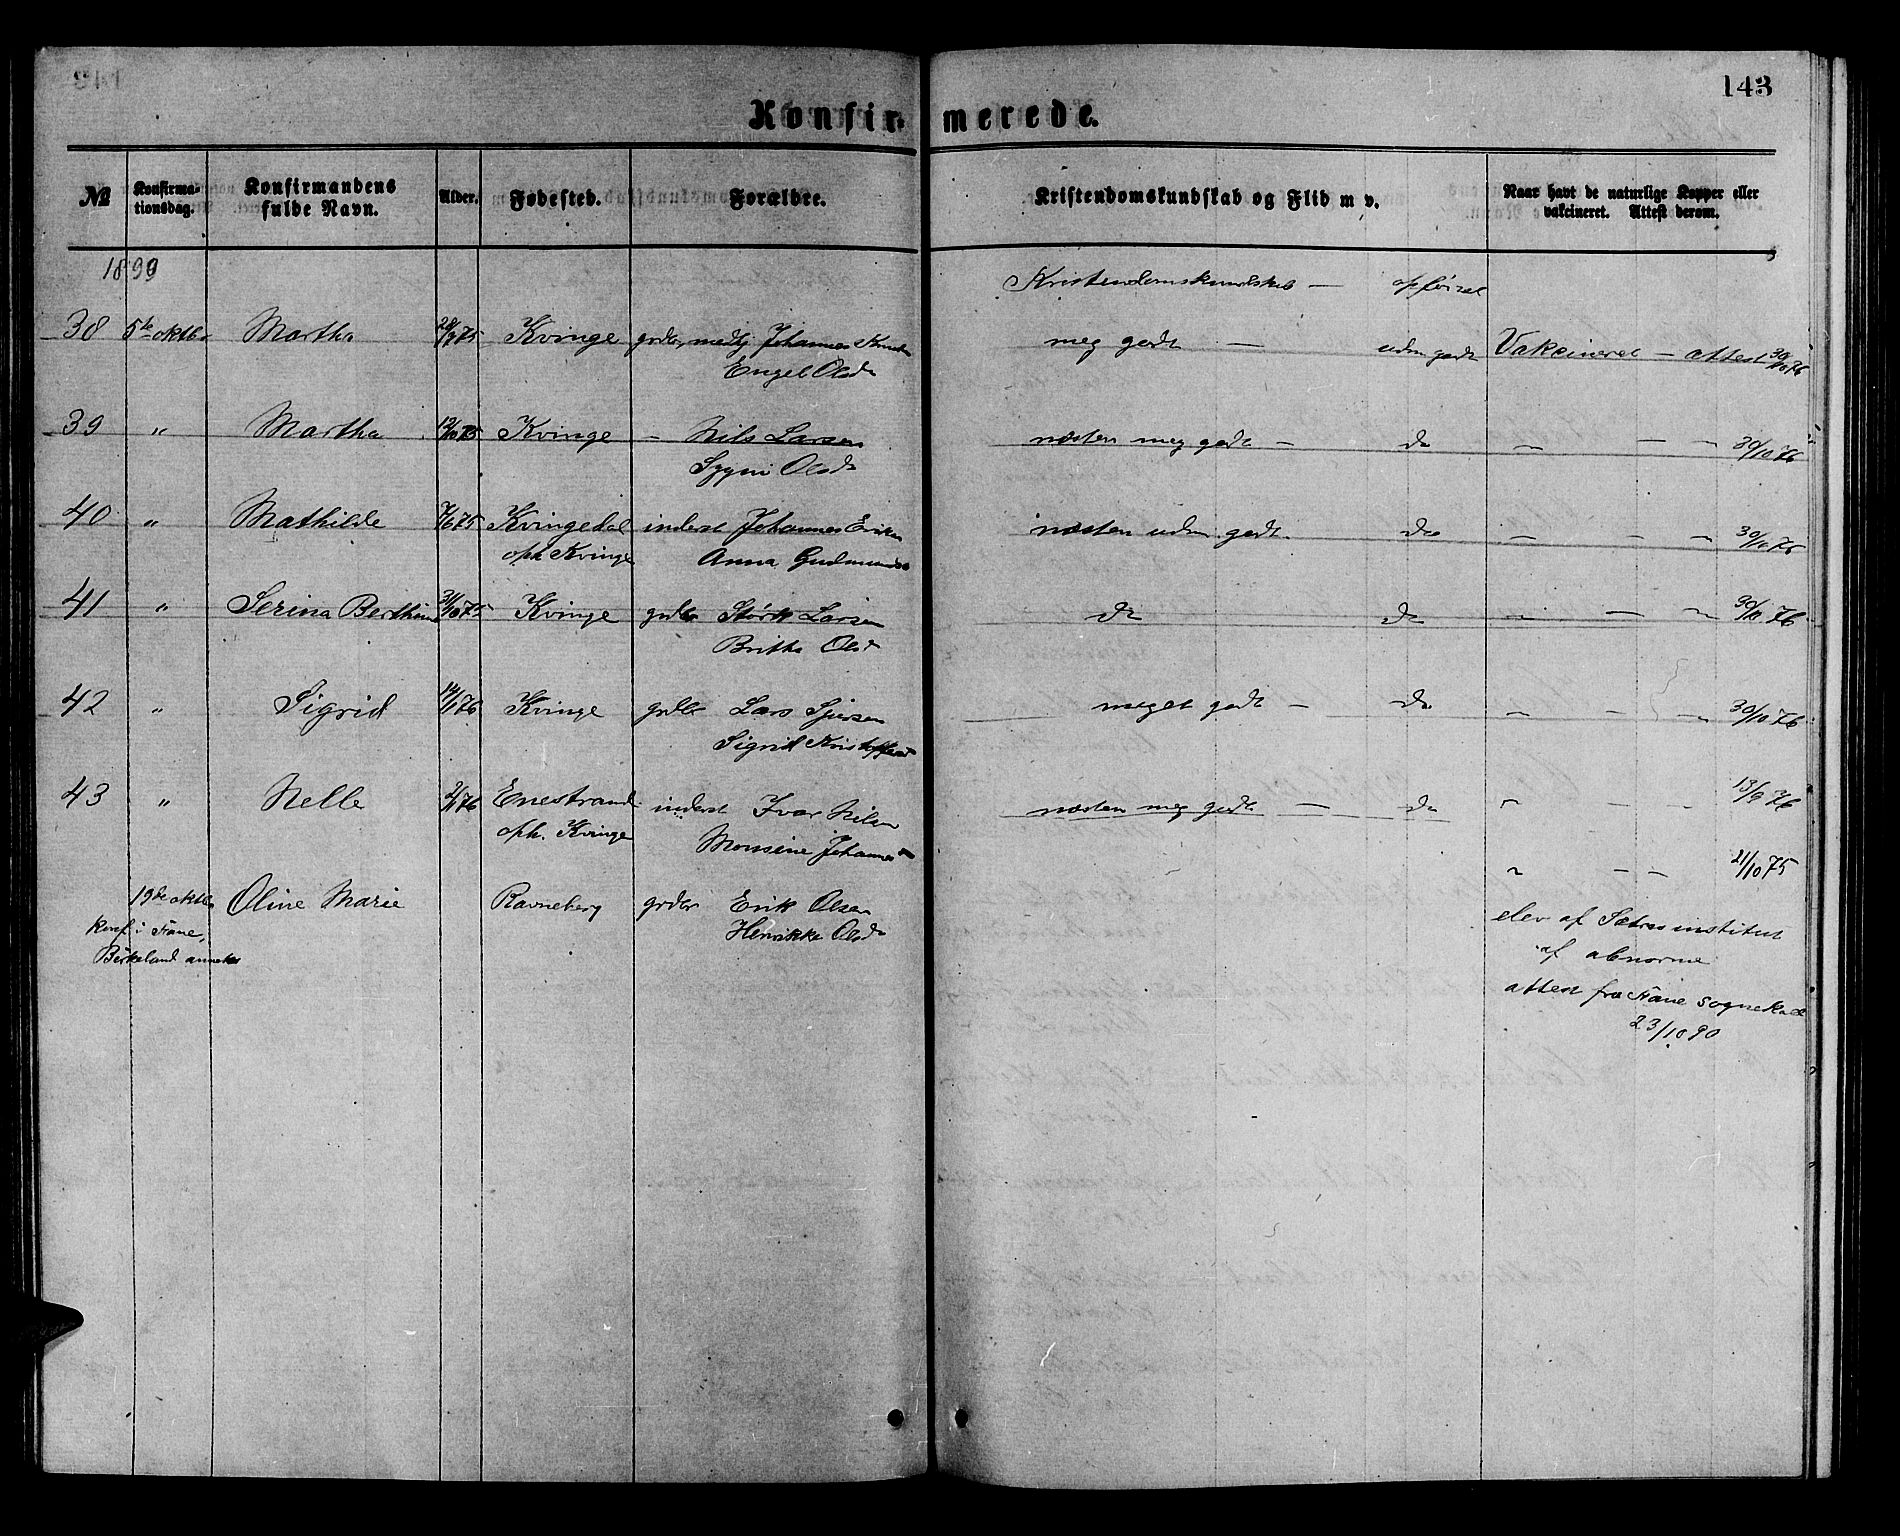 143
Konfirmerede.
№ Konfirmationsdag. Konfirmandens fulde Navn. Alder. Fødested. Forældre. Kristendomskundskab og Flid m v. Naar havt de naturlige Kopper eller vakcineret. Attest derom.
Kristendomskundskab — opførsel
38 5te oktbr Martha Kvinge grdbr, Johannes
Engel Olsd meg godt — udm godt Vakcineret — attest 30/10 76
39 " Martha 12/10 75 Kvinge — Nils Larsen
Olsd næsten meg godt — do " — — 30/10 76
40 " Mathilde 7/6 75 Kvingedal inderst Johannes Eriksen
oph Kvinge Anna Gudmundsd næsten udm. godt. do " — — 30/10 76
41 " Serina Berthine 31/10 75 Kvinge grdbr Størk Larsen
Britha Olsd do do " — — 30/10 76
42 " Sigrid 14/1 76 Kvinge grdbr Lars Sjursen
Sigrid Kristoffersd meget godt — do " — — 30/10 76
43 " Nelle 2/1 76 Enestrand inderst Ivar Nilsen
oph. Kvinge Monsine Johannesd næsten meg godt — do " — — 13/9 76
19de oktbr Oline Marie Ravneberg grdbr Erik Olsen
Henrikke Olsd " — — 21/10 75
konf i Fane,
Birkeland anneks
elev af institut
af abnorme
attest fra Fane sognekald
23/10 90